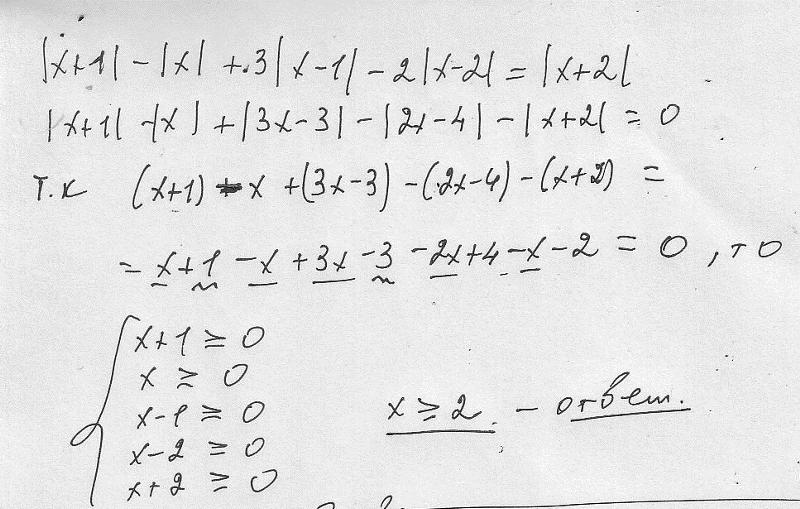 |x+1| - |x| + 3|x-1| - 2|x-2| = |x+2|
|x+1| - |x| + |3x-3| - |2x-4| - |x+2| = 0
т.к (x+1) - x + (3x-3) - (2x-4) - (x+2) =
= x+1 - x + 3x - 3 - 2x + 4 - x - 2 = 0, то
x+1 ≥ 0
x ≥ 0
x-1 ≥ 0
x-2 ≥ 0
x+2 ≥ 0
x ≥ 2 - ответ.